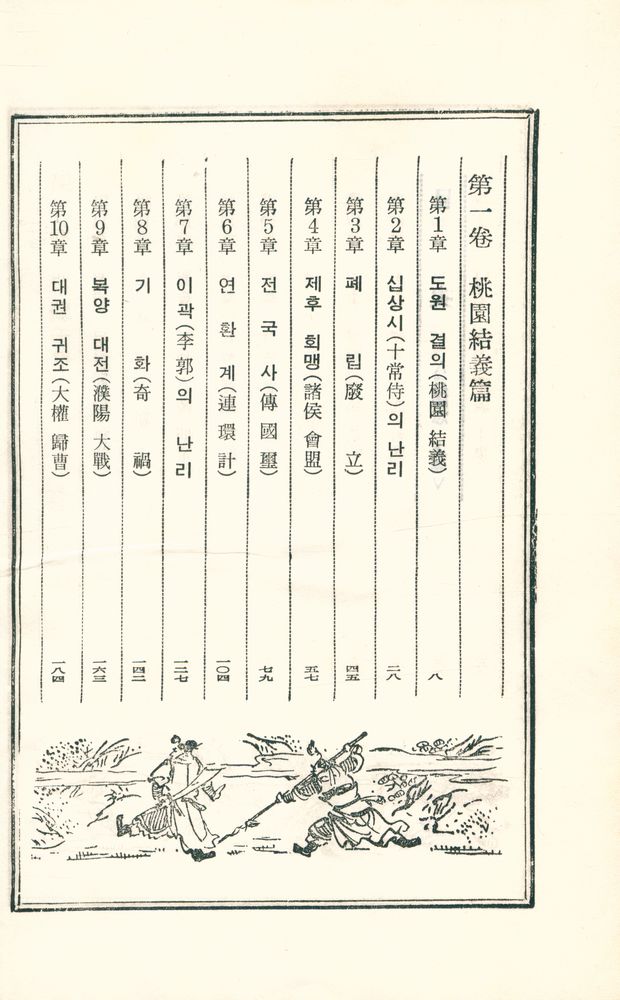 第一卷 桃園結義篇
第1章 도원 결의(桃園 結義) 八
第2章 십상시(十常侍)의 난리 二八
第3章 폐 립(廢 立) 四五
第4章 제후 회맹(諸侯 會盟) 五七
第5章 전 국 사(傳國璽) 七九
第6章 연 환 계(連環計) 一〇四
第7章 이곽(李郭)의 난리 一二七
第8章 기 화(奇 禍) 一四二
第9章 복양 대전(濮陽 大戰) 一六三
第10章 대권 귀조(大權 歸曹) 一八四